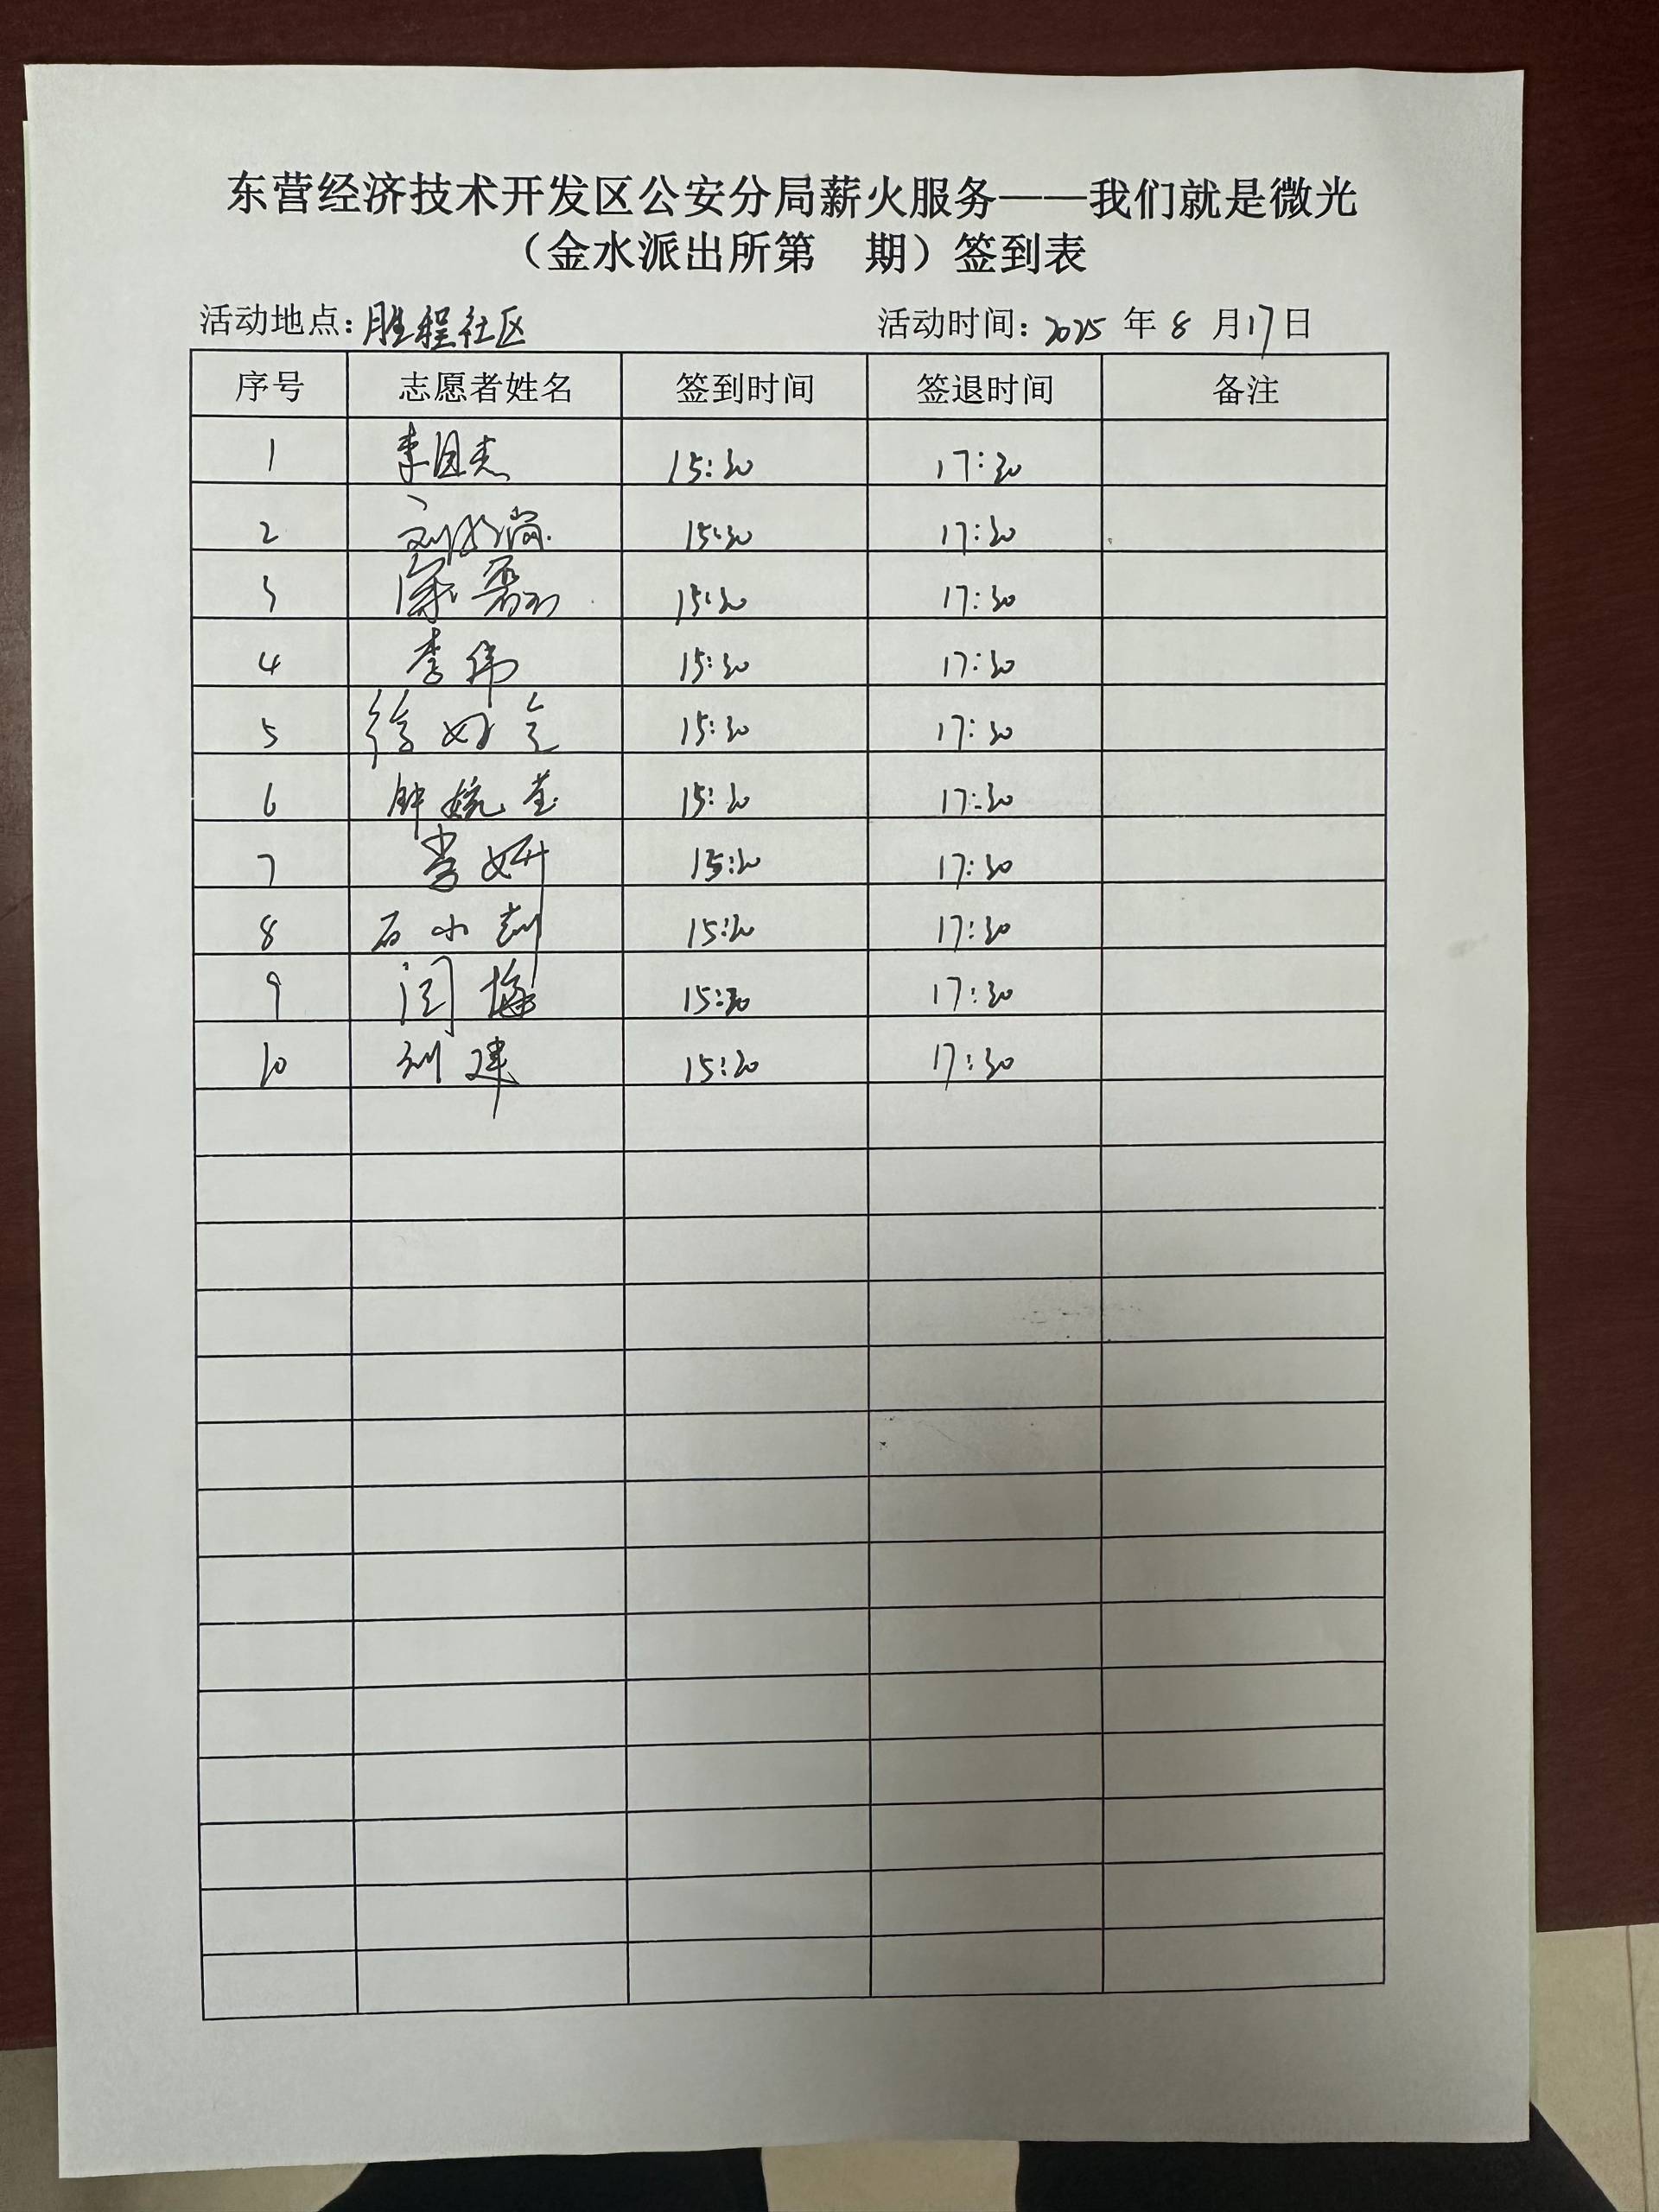 东营经济技术开发区公安分局薪火服务——我们就是微光
（金水派出所第 期）签到表
活动地点：胜程社区 活动时间：2025 年 8 月 17 日
序号 志愿者姓名 签到时间 签退时间 备注
1 李国杰 15:30 17:30
2 刘 15:30 17:30
3 15:30 17:30
4 李伟 15:30 17:30
5 徐 15:30 17:30
6 钟婉莹 15:30 17:30
7 李妍 15:30 17:30
8 石小 15:30 17:30
9 闫梅 15:30 17:30
10 刘建 15:30 17:30